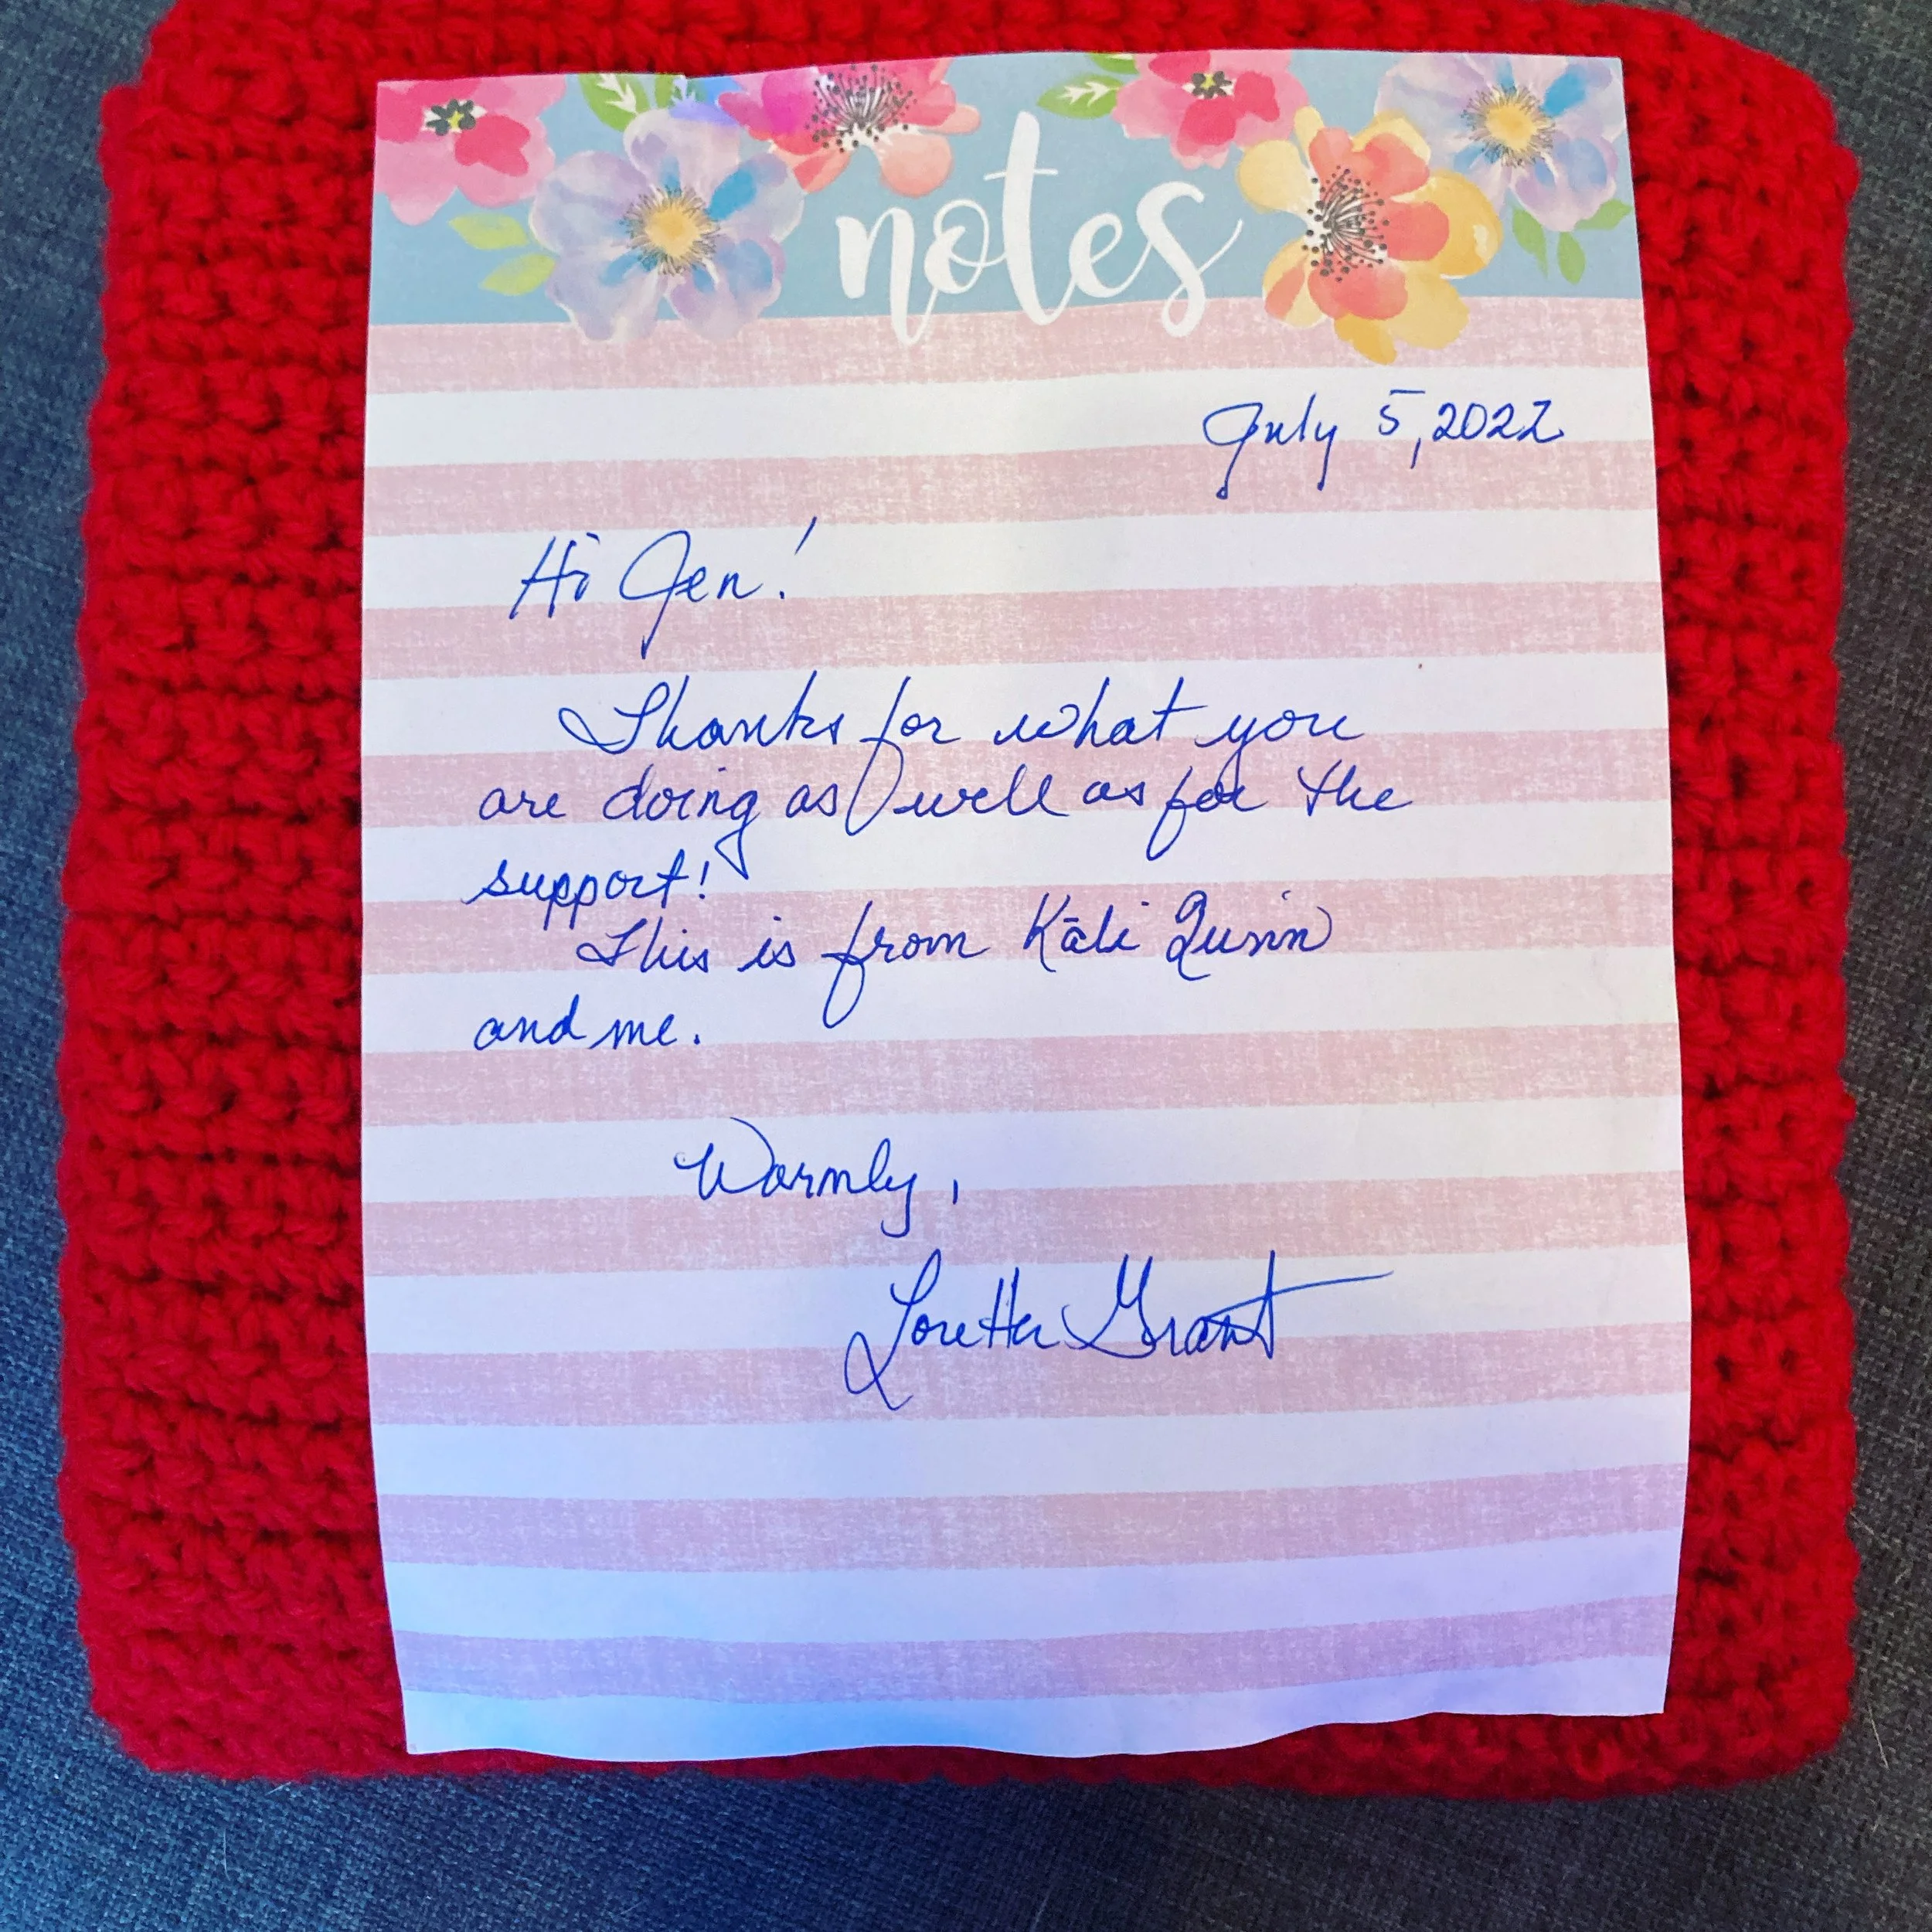 notes
July 5, 2022
Hi Jen!
Thanks for what you
are doing as well as for the
support!
This is from Kāli Quinn
and me.
Warmly,
Loretta Grant